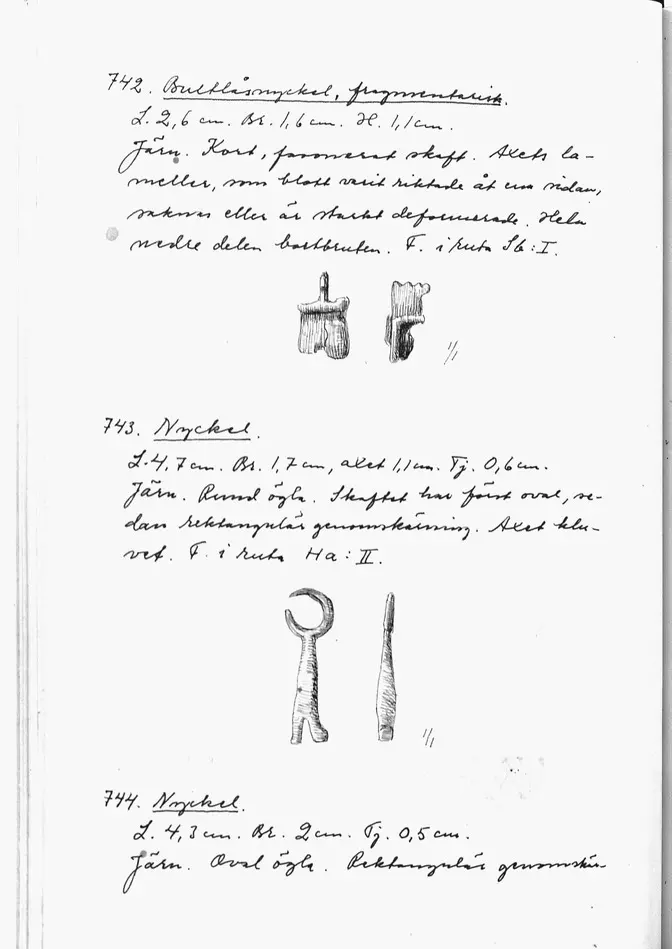 742. Bultlåsnyckel, fragmentarisk.
L. 2,6 cm. Br. 1,6 cm. H. 1,1 cm.
Järn. Kort, facetterat skaft. Axets la-
meller, som blott varit riktade åt ena sidan,
saknas eller är starkt deformerade. Hela
nedre delen bortbruten. F. i ruta Sb:I.
1/1
743. Nyckel.
L. 4,7 cm. Br. 1,7 cm, axet 1,1 cm. Tj. 0,6 cm.
Järn. Rund ögla. Skaftet har först oval, se-
dan rektangulär genomskärning. Axet klu-
vet. F. i ruta Ha:II.
1/1
744. Nyckel.
L. 4,3 cm. Br. 2 cm. Tj. 0,5 cm.
Järn. Oval ögla. Rektangulär genomskär-